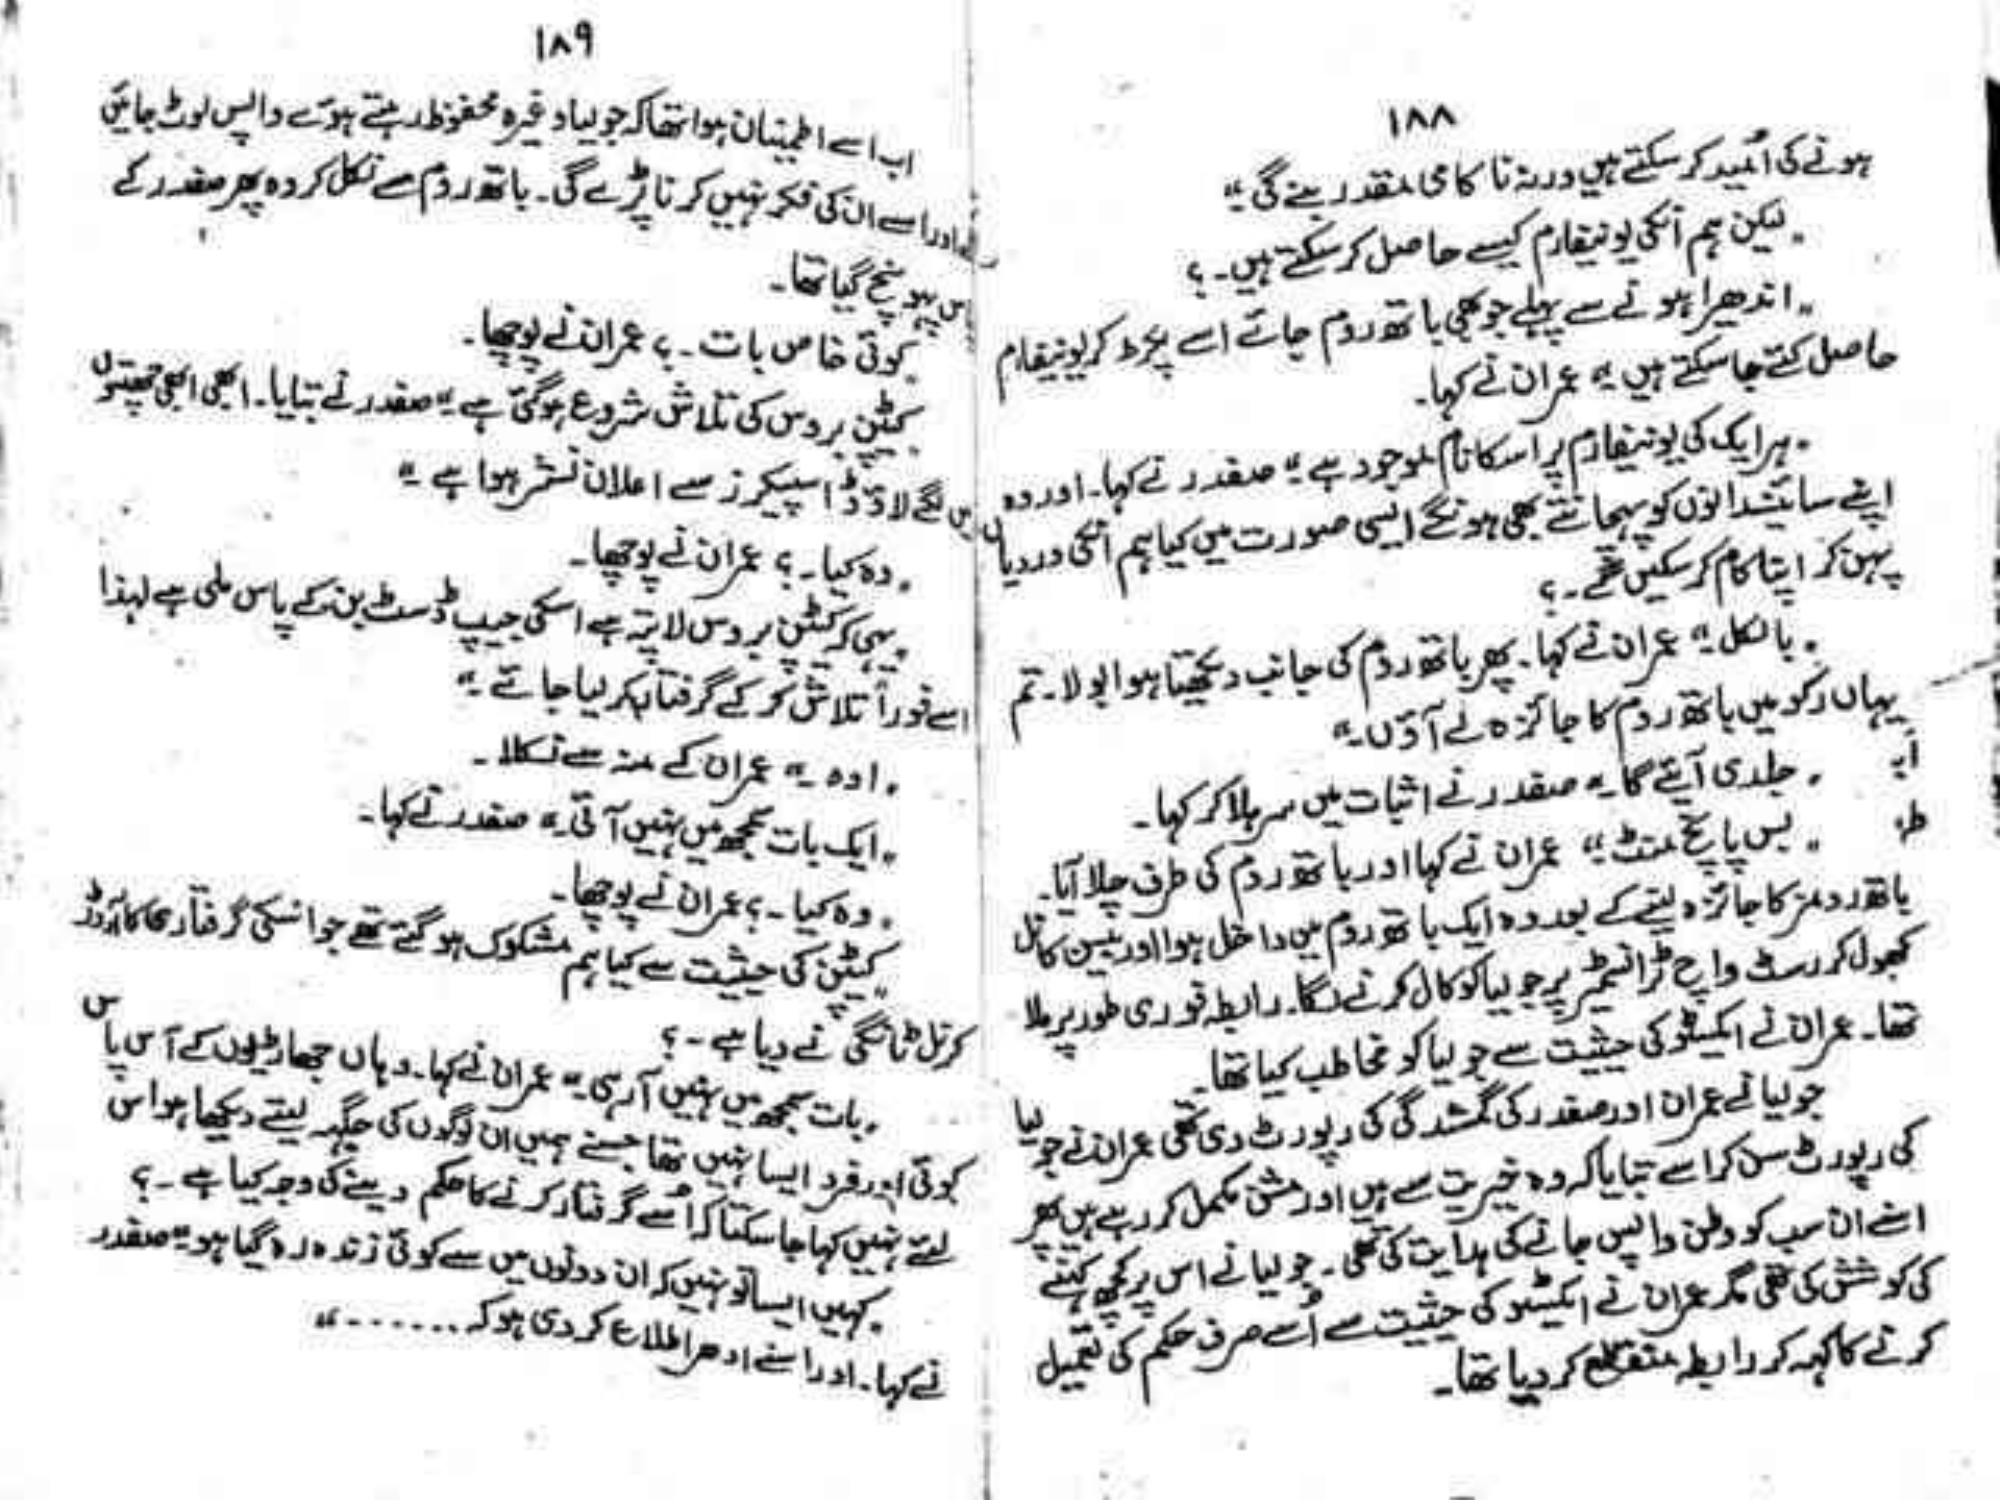 ۱۸۸
ہونے کی اُمید کر سکتے ہیں ورنہ ناکامی مقدر بنے گی ۔"
"لیکن ہم انکی یونیفارم کیسے حاصل کر سکتے ہیں ۔ ؟
"اندھیرا ہونے سے پہلے جو بھی باتھ روم جائے اسے پکڑ کر یونیفارم
حاصل کئے جا سکتے ہیں ۔" عمران نے کہا۔
"ہر ایک کی یونیفارم پر اسکا نام موجود ہے ۔" صفدر نے کہا۔ اور وہ
اپنے سائنسدانوں کو پہچانتے بھی ہونگے ایسی صورت میں کیا ہم انکی وردیاں
پہن کر اپنا کام کر سکیں گے ۔ ؟
"بالکل ۔" عمران نے کہا۔ پھر باتھ روم کی جانب دیکھتا ہوا بولا۔ تم
یہاں رکو میں باتھ روم کا جائزہ لے آؤں ۔"
"جلدی آیئے گا ۔" صفدر نے اثبات میں سر ہلا کر کہا۔
"بس پانچ منٹ ۔" عمران نے کہا اور باتھ روم کی طرف چلا آیا۔
باتھ رومز کا جائزہ لینے کے بعد وہ ایک باتھ روم میں داخل ہوا اور بیسن کا نل
کھول کر رسٹ واچ ٹرانسمیٹر پر جولیا کو کال کرنے لگا۔ رابطہ فوری طور پر ملا
تھا۔ عمران نے ایکسٹو کی حیثیت سے جولیا کو مخاطب کیا تھا۔
جولیا نے عمران اور صفدر کی گمشدگی کی رپورٹ دی تھی عمران نے جولیا
کی رپورٹ سن کر اسے بتایا کہ وہ خیریت سے ہیں اور مشن مکمل کر رہے ہیں پھر
اسنے ان سب کو وطن واپس جانے کی ہدایت کی تھی ۔ جولیا نے اس پر کچھ کہنے
کی کوشش کی تھی مگر عمران نے ایکسٹو کی حیثیت سے اُسے صرف حکم کی تعمیل
کرنے کا کہہ کر رابطہ منقطع کر دیا تھا۔
۱۸۹
اب اسے اطمینان ہوا تھا کہ جولیا وغیرہ محفوظ رہتے ہوئے واپس لوٹ جائیں
اور اسے ان کی فکر نہیں کرنا پڑے گی۔ باتھ روم سے نکل کر وہ پھر صفدر کے
پاس پہونچ گیا تھا۔
"کوئی خاص بات ۔ ؟ عمران نے پوچھا۔
"کیپٹن بروس کی تلاش شروع ہو گئی ہے ۔" صفدر نے بتایا۔ ابھی ابھی چھتوں
میں لگے لاؤڈ اسپیکرز سے اعلان نشر ہوا ہے ۔"
"وہ کیا ۔ ؟ عمران نے پوچھا۔
"یہی کہ کیپٹن بروس لاپتہ ہے اسکی جیپ ڈسٹ بن کے پاس ملی ہے لہذا
اسے فوراً تلاش کر کے گرفتار کر لیا جائے ۔"
"اوہ ۔" عمران کے منہ سے نکلا ۔
"ایک بات سمجھ میں نہیں آئی ۔" صفدر نے کہا۔
"وہ کیا ۔ ؟ عمران نے پوچھا۔
"کیپٹن کی حیثیت سے کیا ہم مشکوک ہو گئے تھے جو انکی گرفتاری کا آرڈر
کرنل ٹانگی نے دیا ہے ۔ ؟
"بات سمجھ میں نہیں آ رہی ۔" عمران نے کہا۔ وہاں جھاڑیوں کے آس پاس
کوئی اور فرد ایسا نہیں تھا جسنے ہمیں ان لوگوں کی جگہ لیتے دیکھا ہو اس
لئے نہیں کہا جا سکتا کہ اُسے گرفتار کرنے کا حکم دینے کی وجہ کیا ہے ۔ ؟
"کہیں ایسا تو نہیں کہ ان دونوں میں سے کوئی زندہ رہ گیا ہو ۔" صفدر
نے کہا۔ اور اسنے ادھر اطلاع کر دی ہو کہ ...... ۔"